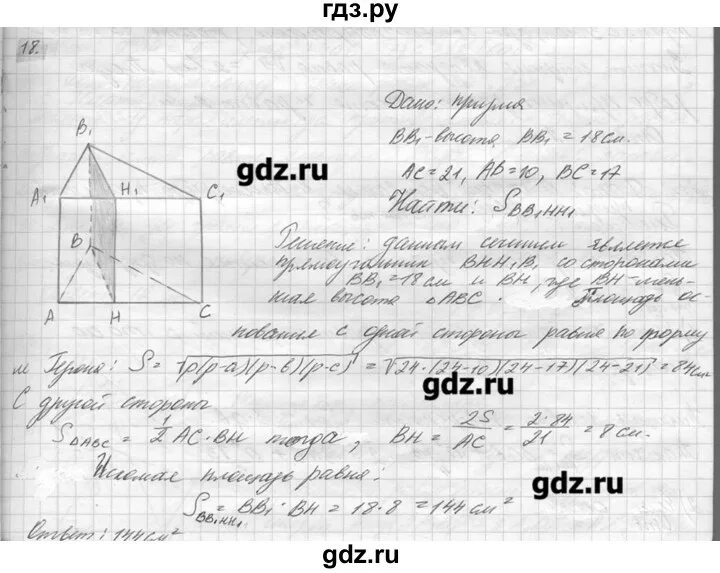 гдз.ру
18.
Дано: призма
BB₁-высота, BB₁ = 18 см.
AC = 21, AB = 10, BC = 17
Найти: S BB₁HH₁
gdz.ru
B₁
A₁ H₁ C₁
B
A H C
Решение: данным сечением является
прямоугольник BHH₁B₁ со сторонами
BB₁ = 18 см и BH, где BH - мень-
шая высота △ABC. Площадь ос-
нования с одной стороны равна по форму
ле Герона: S = √p(p-a)(p-b)(p-c) = √24·(24-10)(24-17)(24-21) = 84 см
С другой стороны
S△ABC = 1/2 AC·BH тогда, BH = 2S/AC = 2·84/21 = 8 см.
Искомая площадь равна:
gdz.ru
S BB₁HH₁ = BB₁·BH = 18·8 = 144 см²
Ответ: 144 см²
gdz.ru